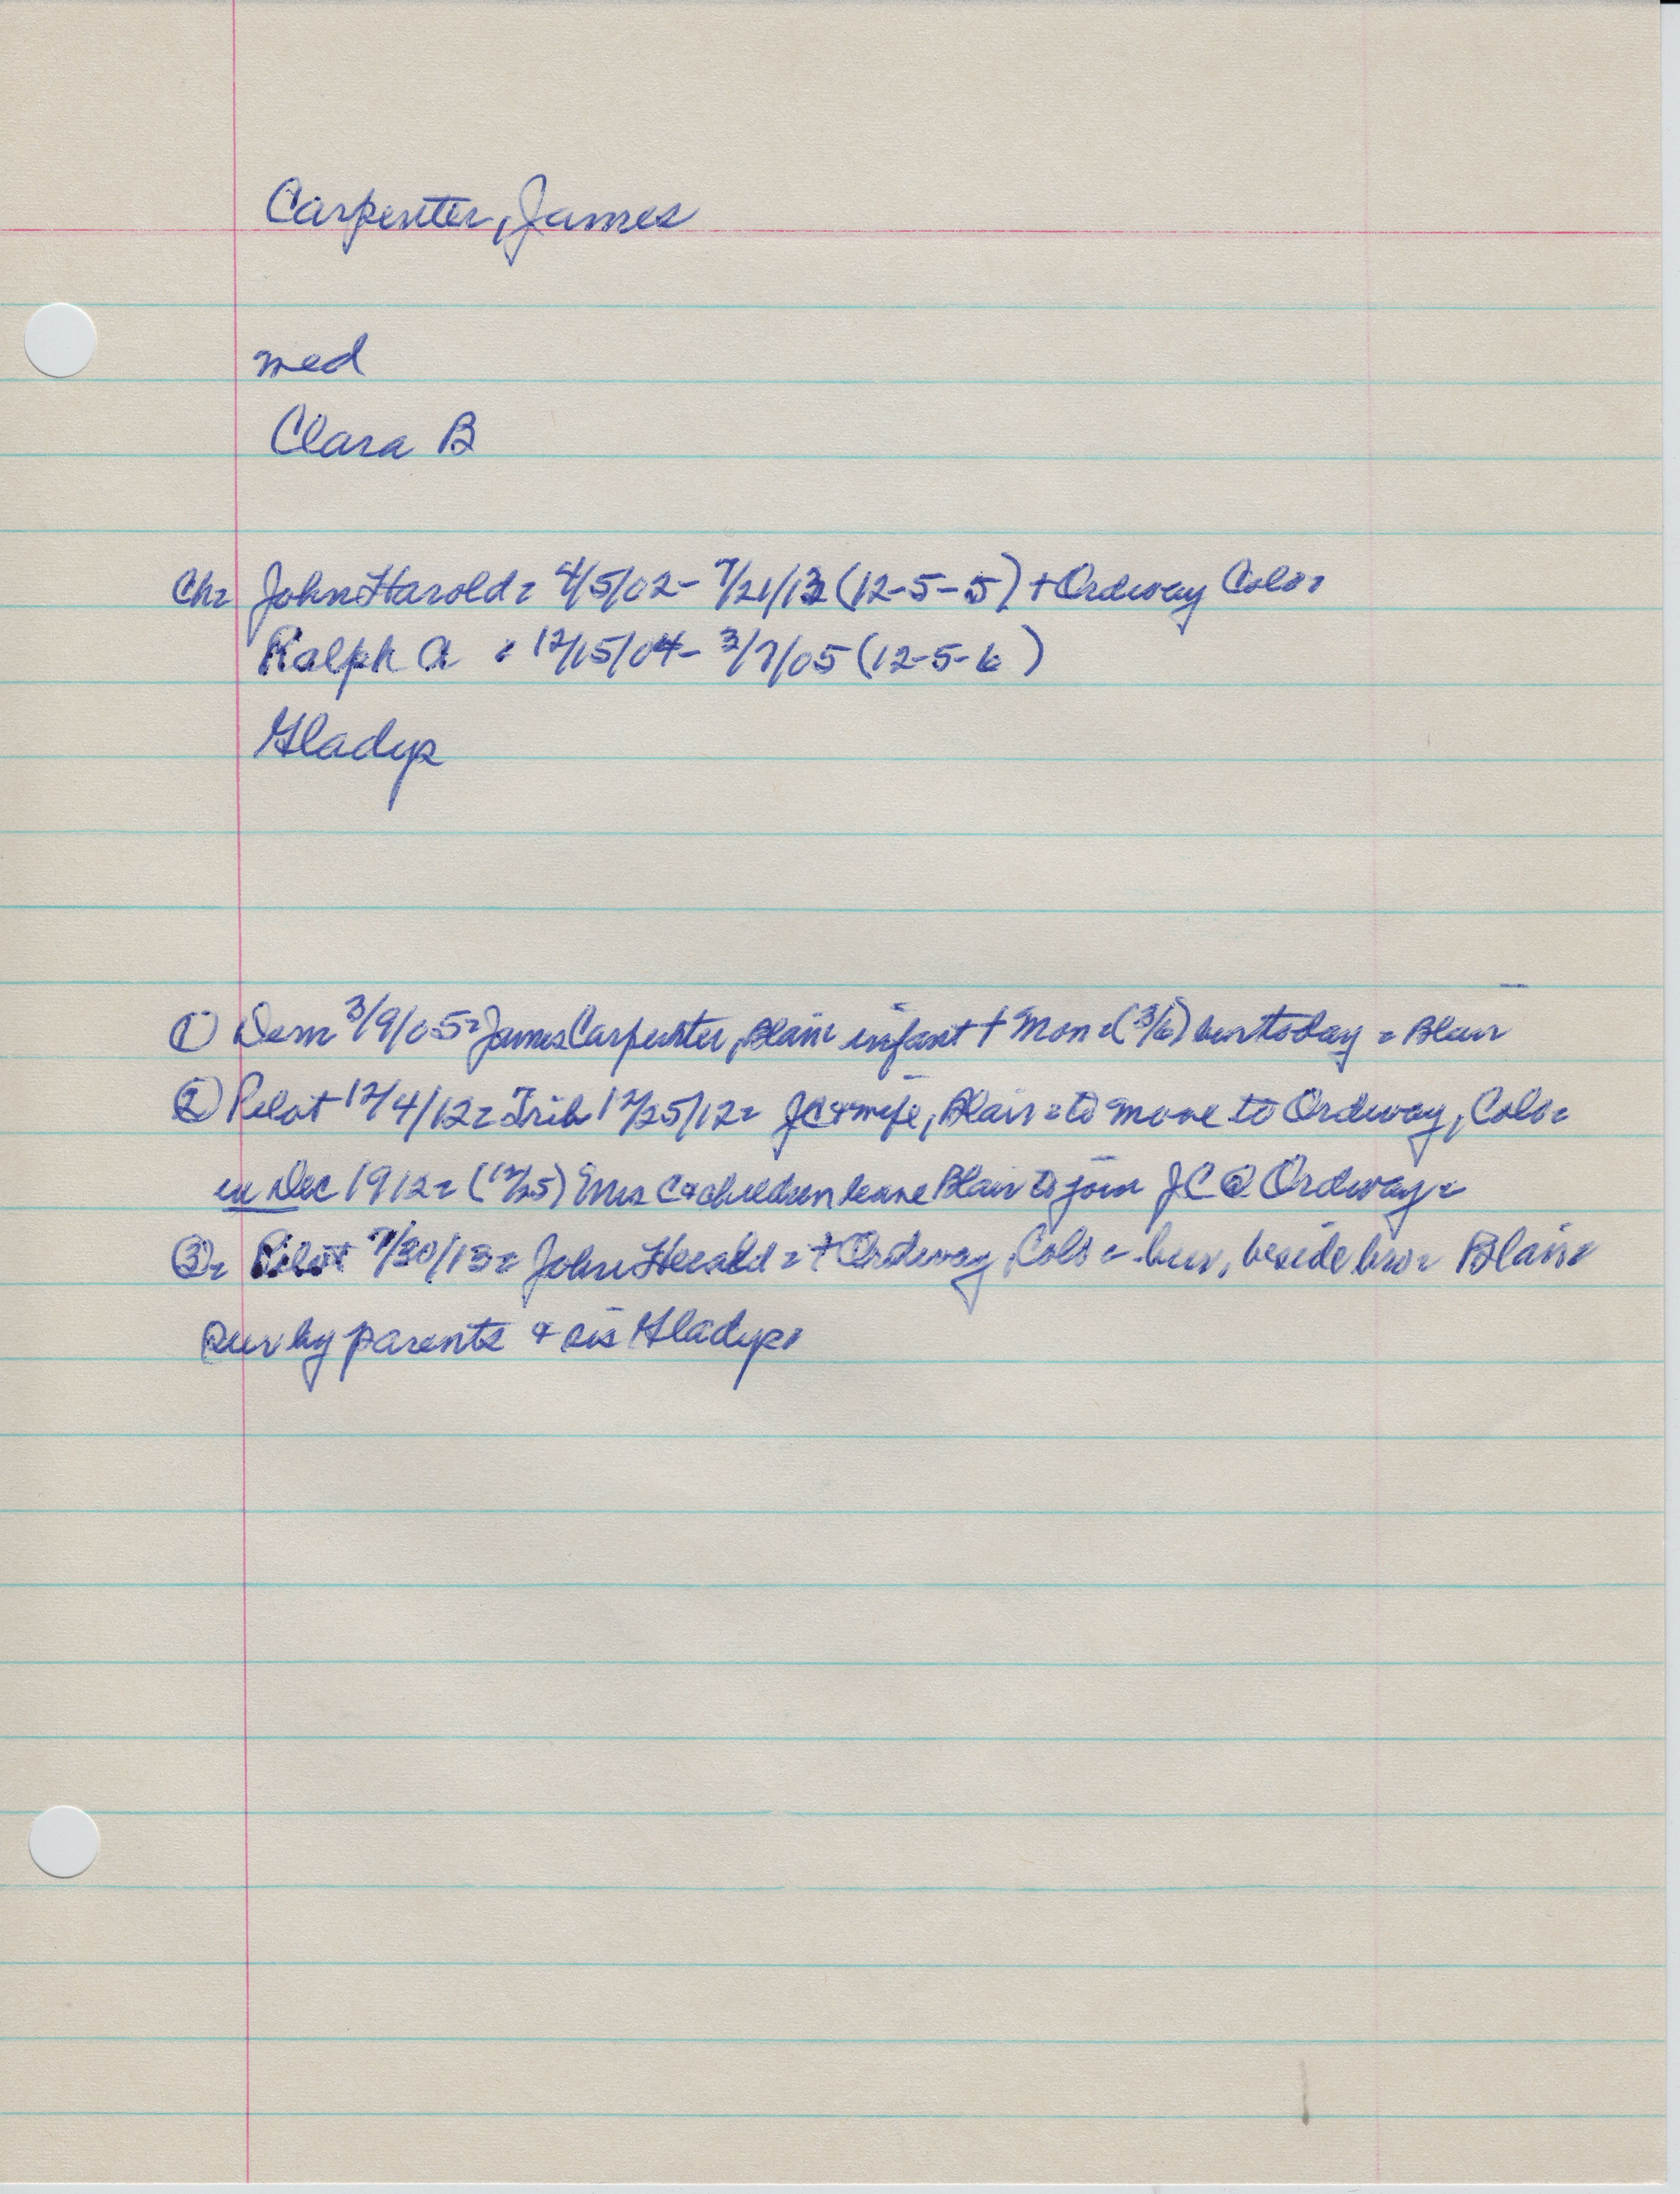 Carpenter, James
med
Clara B
Ch= John Harold= 4/5/02- 7/21/13 (12-5-5) + Ordway Colo=
Ralph A = 12/15/04- 3/7/05 (12-5-6)
Gladys
① Dem 3/9/05= James Carpenter, Blair infant + Mon=(3/6) bur today = Blair
② Pilot 12/4/12= Trib 12/25/12= JC & wife, Blair = to move to Ordway, Colo=
in Dec 1912= (12/25) Mrs C & children leave Blair to join JC @ Ordway=
③= Pilot 7/30/13= John Herald = + Ordway, Colo = bur, beside bro= Blair=
sur by parents & sis Gladys=